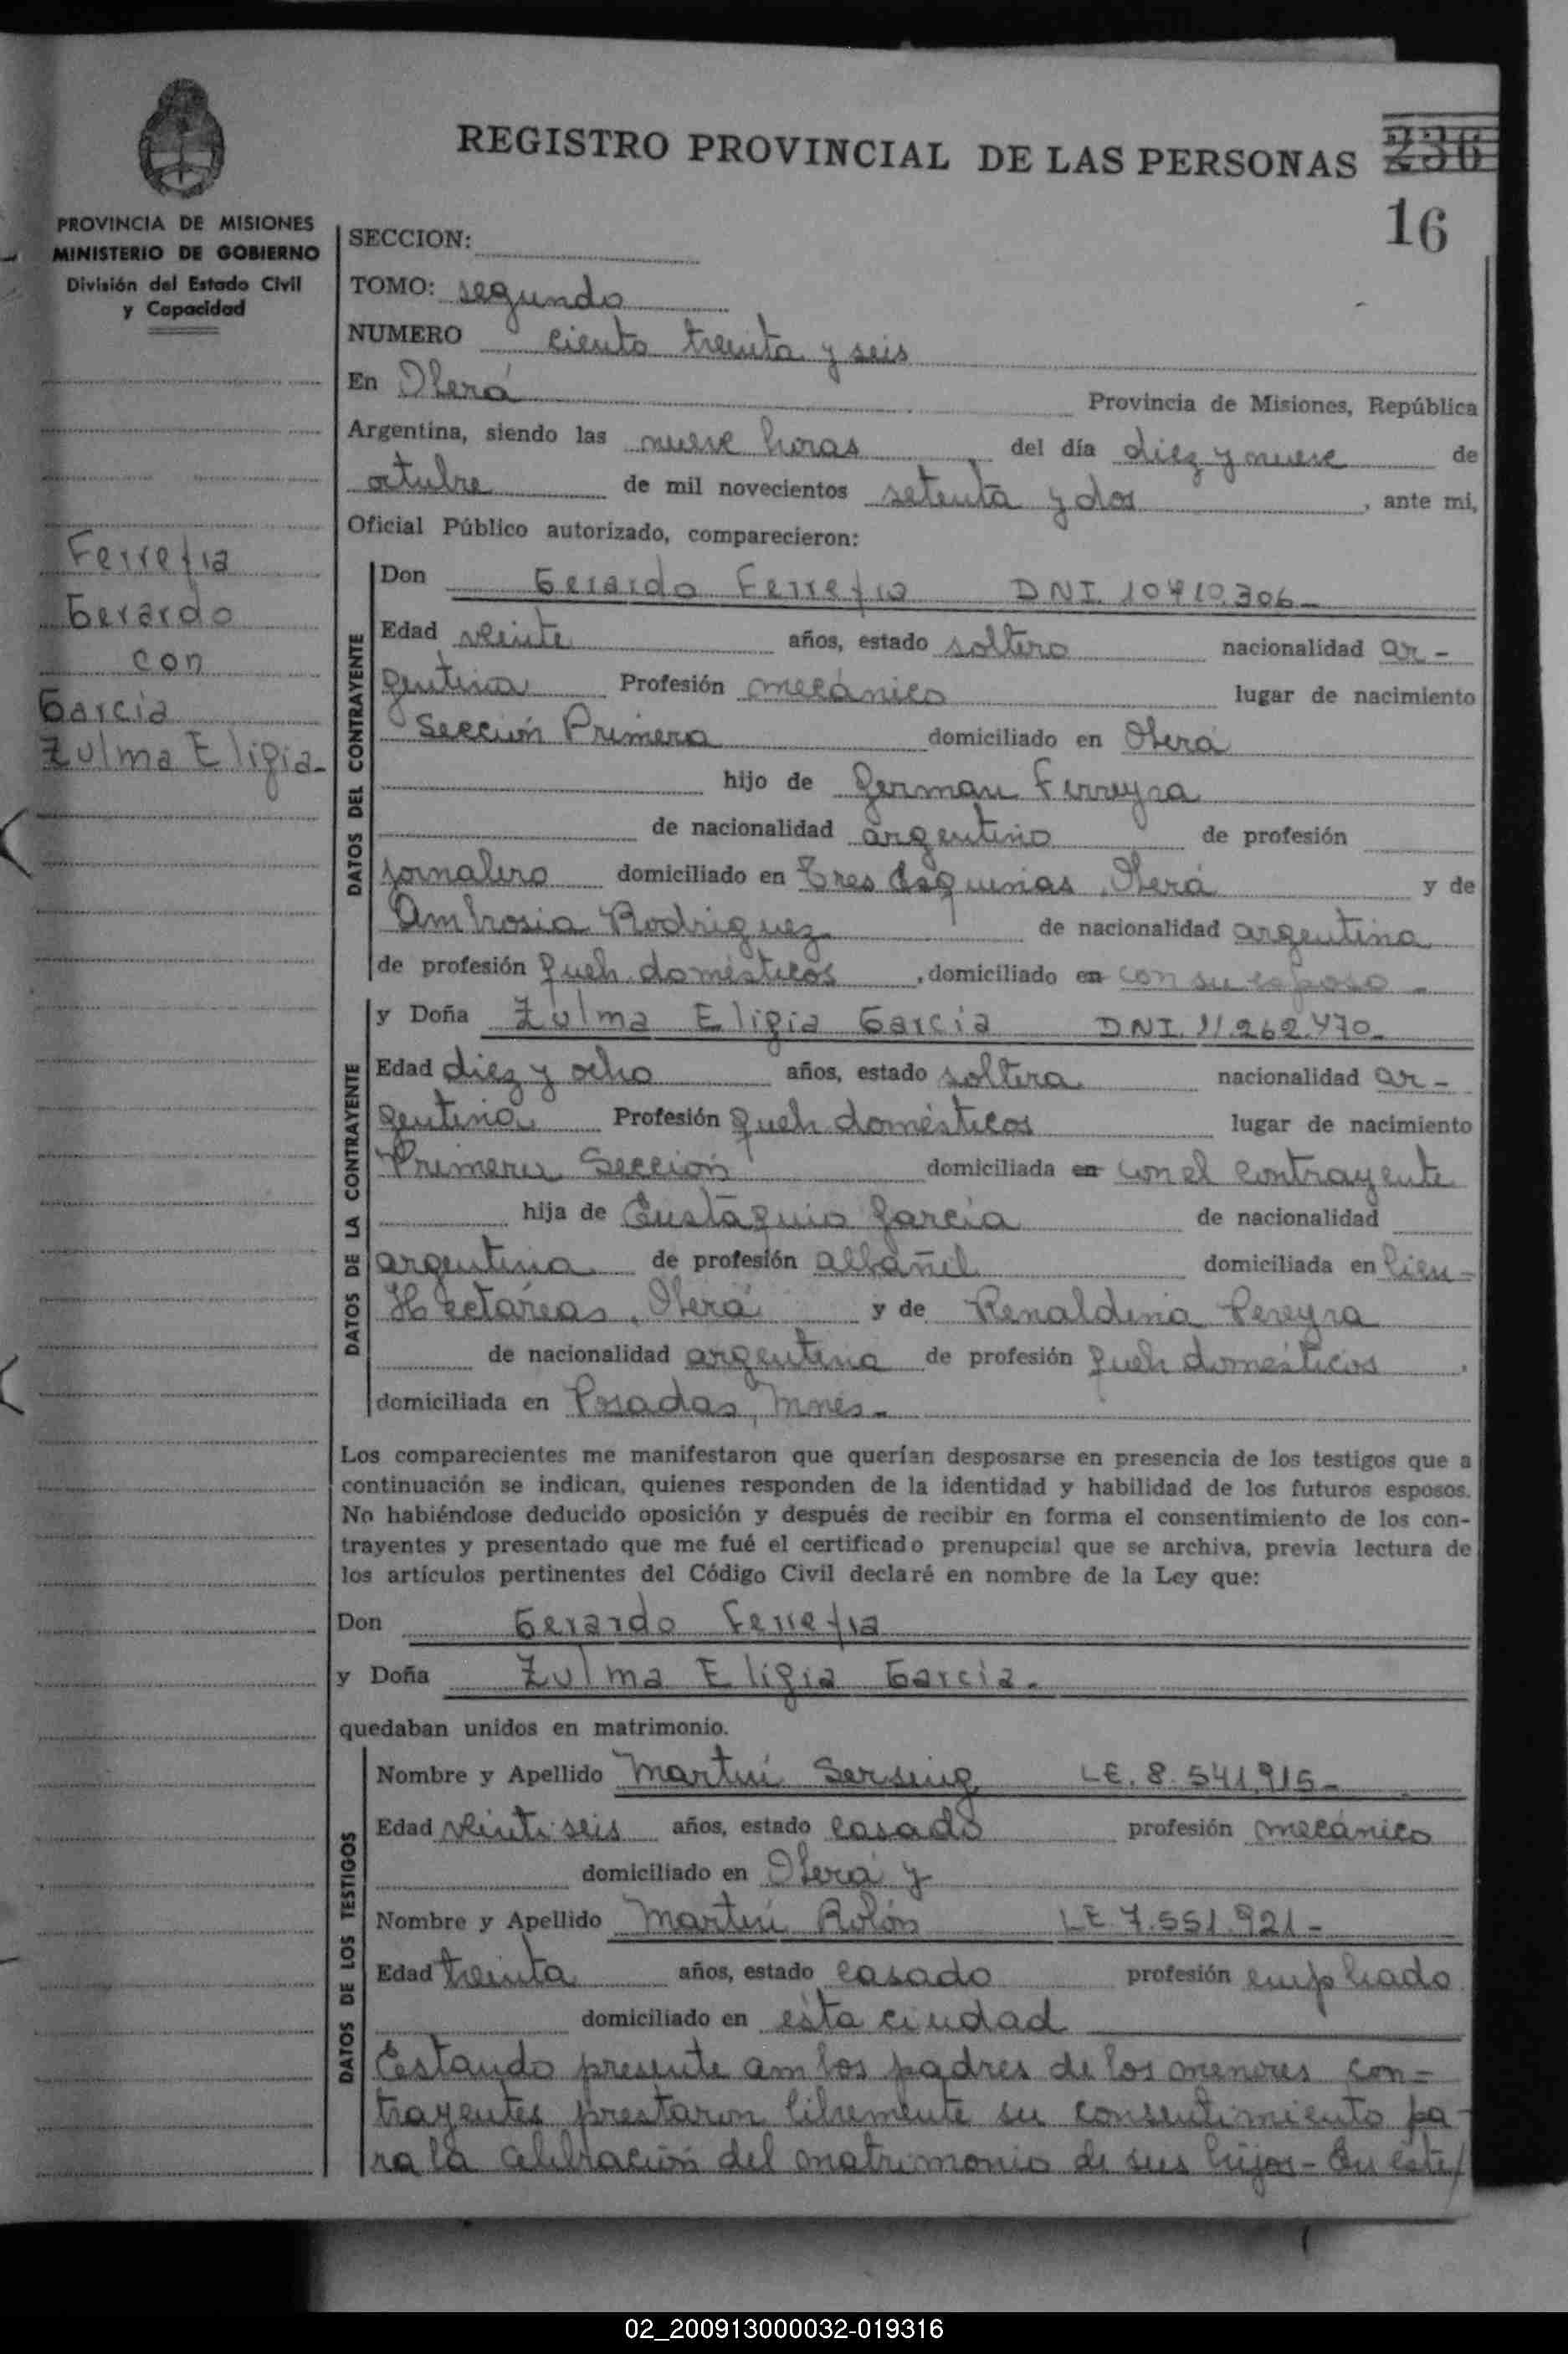 REGISTRO PROVINCIAL DE LAS PERSONAS 236
16
PROVINCIA DE MISIONES
MINISTERIO DE GOBIERNO
División del Estado Civil
y Capacidad
Ferreyra
Gerardo
con
Garcia
Zulma Eligia-
SECCION:
TOMO: segundo
NUMERO ciento treinta y seis
En Oberá Provincia de Misiones, República
Argentina, siendo las nueve horas del día diez y nueve de
octubre de mil novecientos setenta y dos, ante mi,
Oficial Público autorizado, comparecieron:
DATOS DEL CONTRAYENTE
Don Gerardo Ferreyra DNI. 10.710.306-
Edad veinte años, estado soltero nacionalidad ar-
gentina Profesión mecánico lugar de nacimiento
Sección Primera domiciliado en Oberá
hijo de German Ferreyra
de nacionalidad argentino de profesión
jornalero domiciliado en Tres Esquinas, Oberá y de
Ambrosia Rodriguez de nacionalidad argentina
de profesión queh. domésticos, domiciliado en con su esposo-
DATOS DE LA CONTRAYENTE
y Doña Zulma Eligia Garcia DNI. 11.262.470-
Edad diez y ocho años, estado soltera nacionalidad ar-
gentina Profesión queh. domésticos lugar de nacimiento
Primera Sección domiciliada en con el contrayente
hija de Eustaquio Garcia de nacionalidad
argentina de profesión albañil domiciliada en Cien-
Hectáreas, Oberá y de Renaldina Pereyra
de nacionalidad argentina de profesión queh domésticos,
domiciliada en Posadas, Mnes.-
Los comparecientes me manifestaron que querían desposarse en presencia de los testigos que a
continuación se indican, quienes responden de la identidad y habilidad de los futuros esposos.
No habiéndose deducido oposición y después de recibir en forma el consentimiento de los con-
trayentes y presentado que me fué el certificado prenupcial que se archiva, previa lectura de
los artículos pertinentes del Código Civil declaré en nombre de la Ley que:
Don Gerardo Ferreyra
y Doña Zulma Eligia Garcia.
quedaban unidos en matrimonio.
DATOS DE LOS TESTIGOS
Nombre y Apellido Martin LE. 8.541.915-
Edad veintiseis años, estado casado profesión mecánico
domiciliado en Oberá y
Nombre y Apellido Martin Rolón LE 7.551.921-
Edad treinta años, estado casado profesión empleado
domiciliado en esta ciudad
Estando presente ambos padres de los menores con-
trayentes prestaron libremente su consentimiento pa-
ra la celebración del matrimonio de sus hijos- En este/
02_200913000032-019316